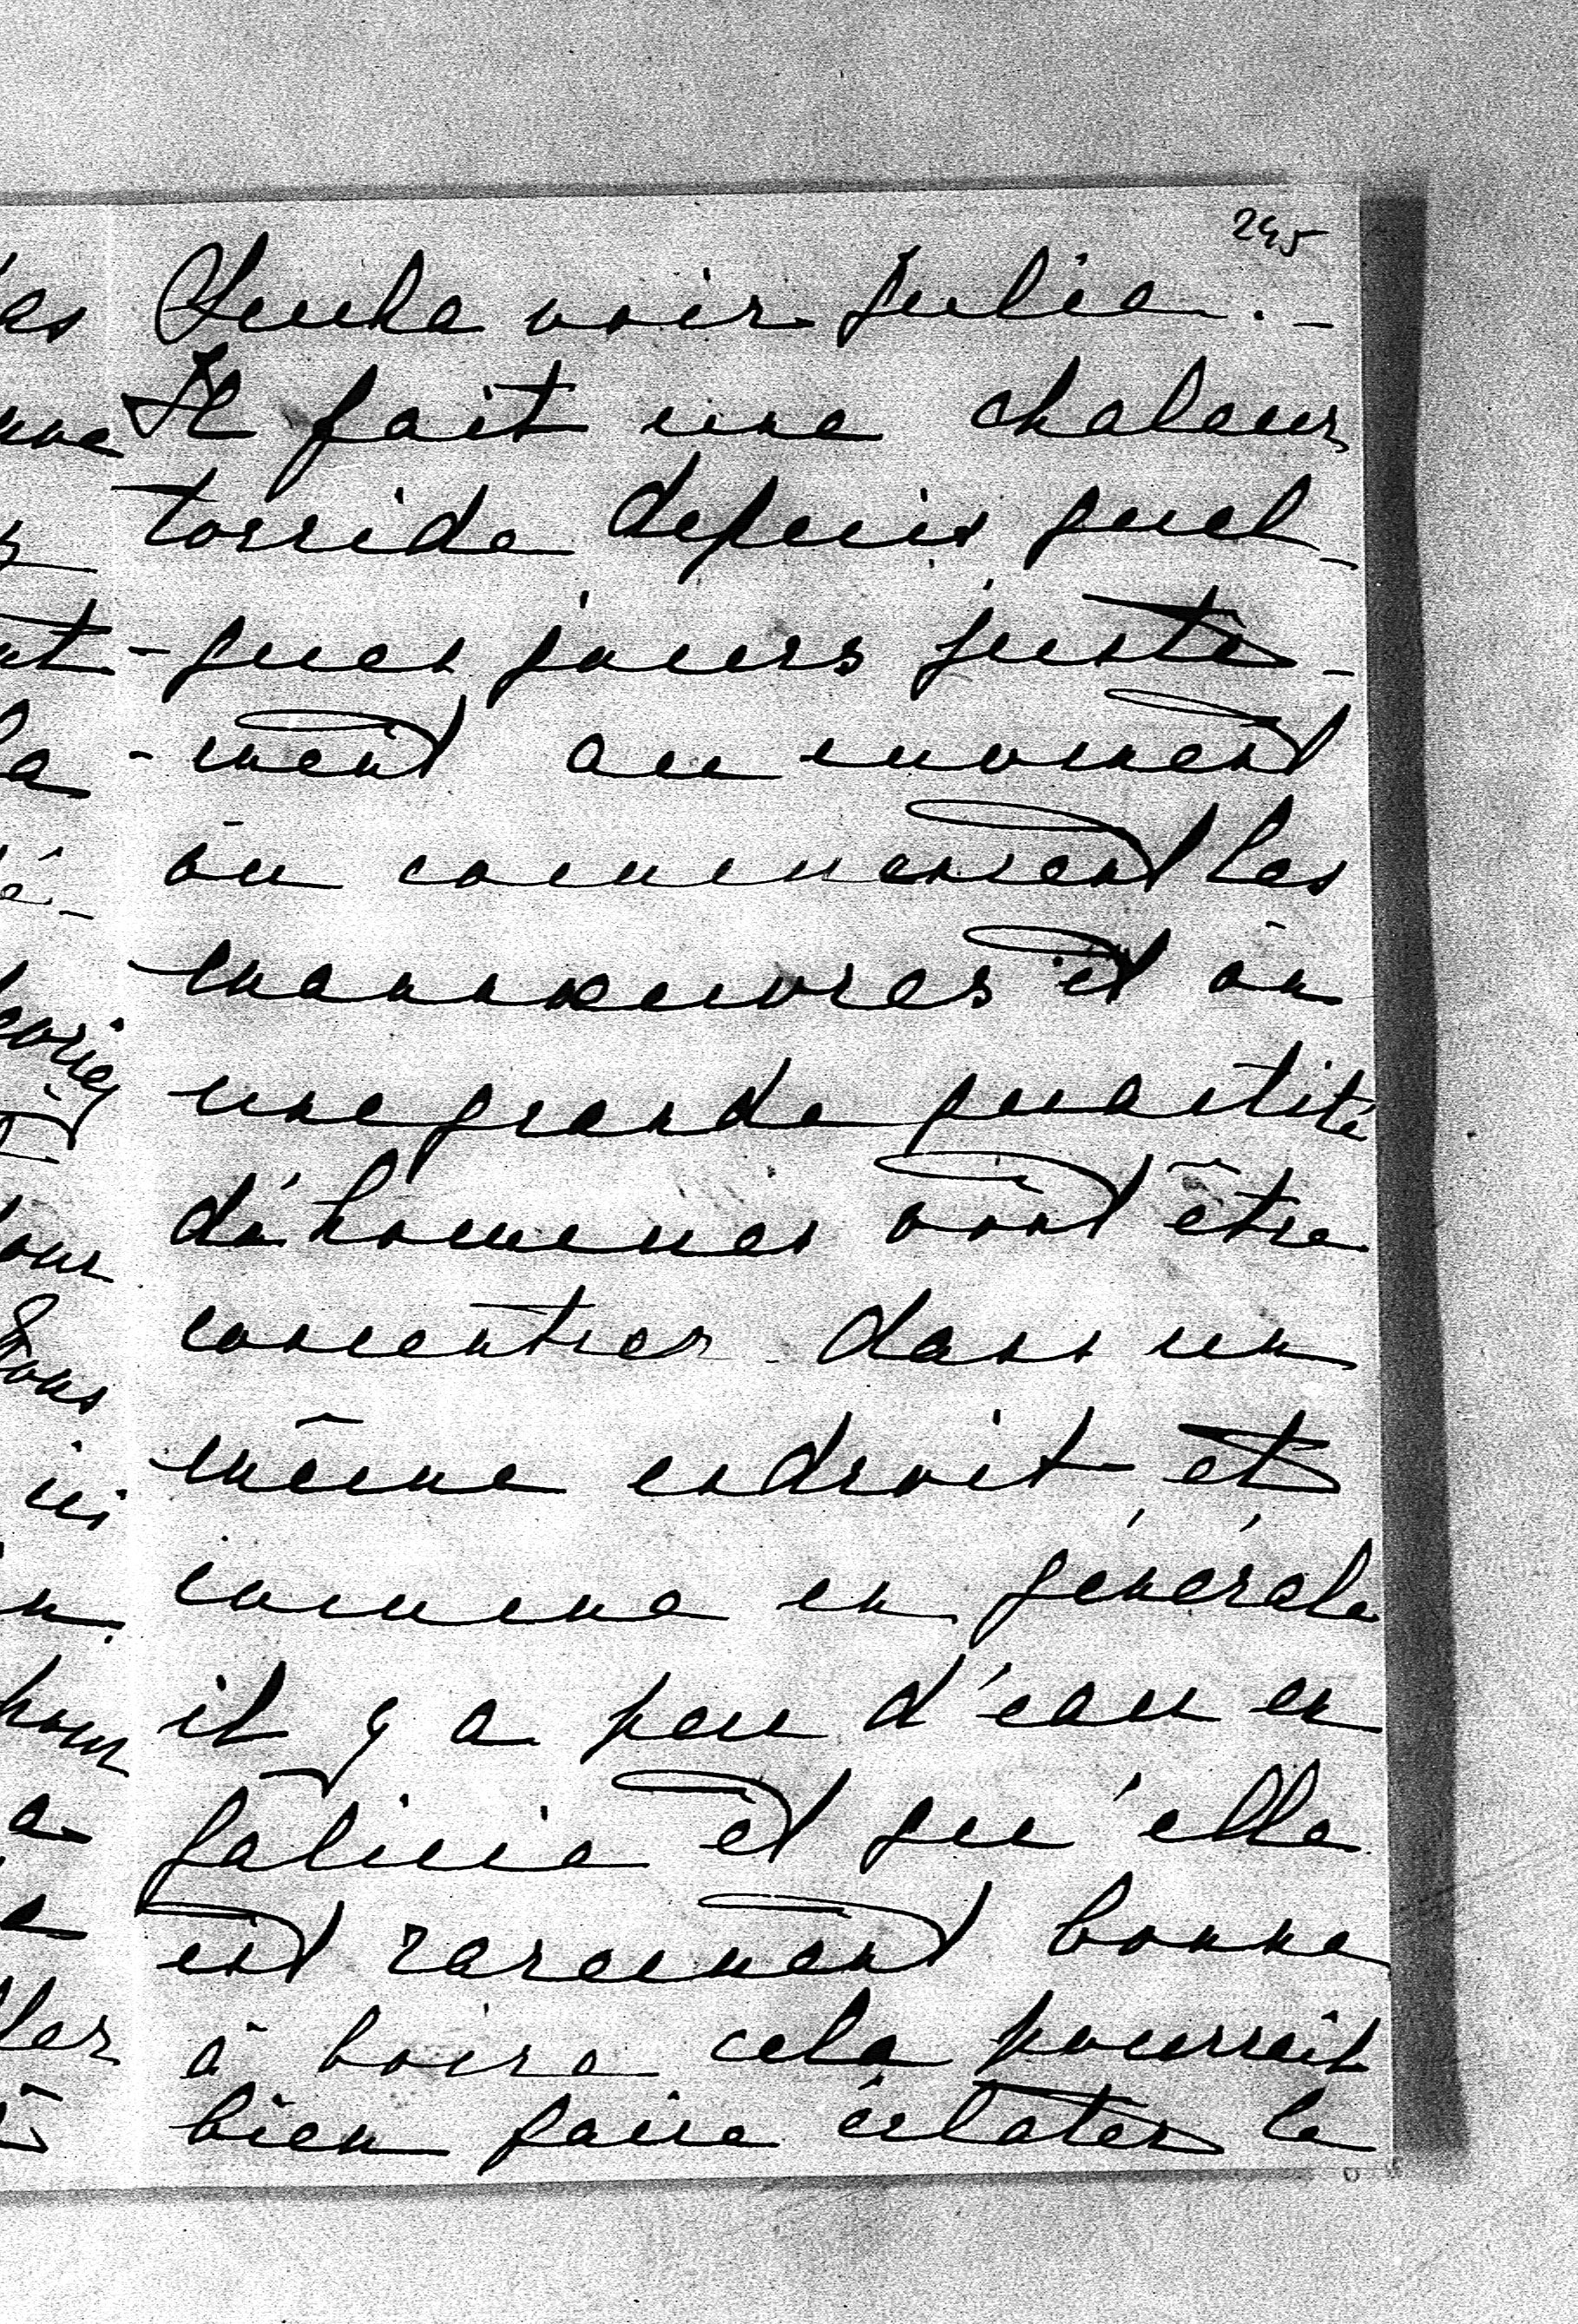 295
voir Julie. -
Il fait une chaleur
torride depuis quel-
-ques jours juste-
-ment au moment
où commencent les
manoeuvres et où
une grande quantité
d'hommes vont être
concentrer dans un
même endroit et
comme en générale
il y a peu d'eau en
Galicie et qu'elle
est rarement bonne
à boire cela pourrait
bien faire éclater le